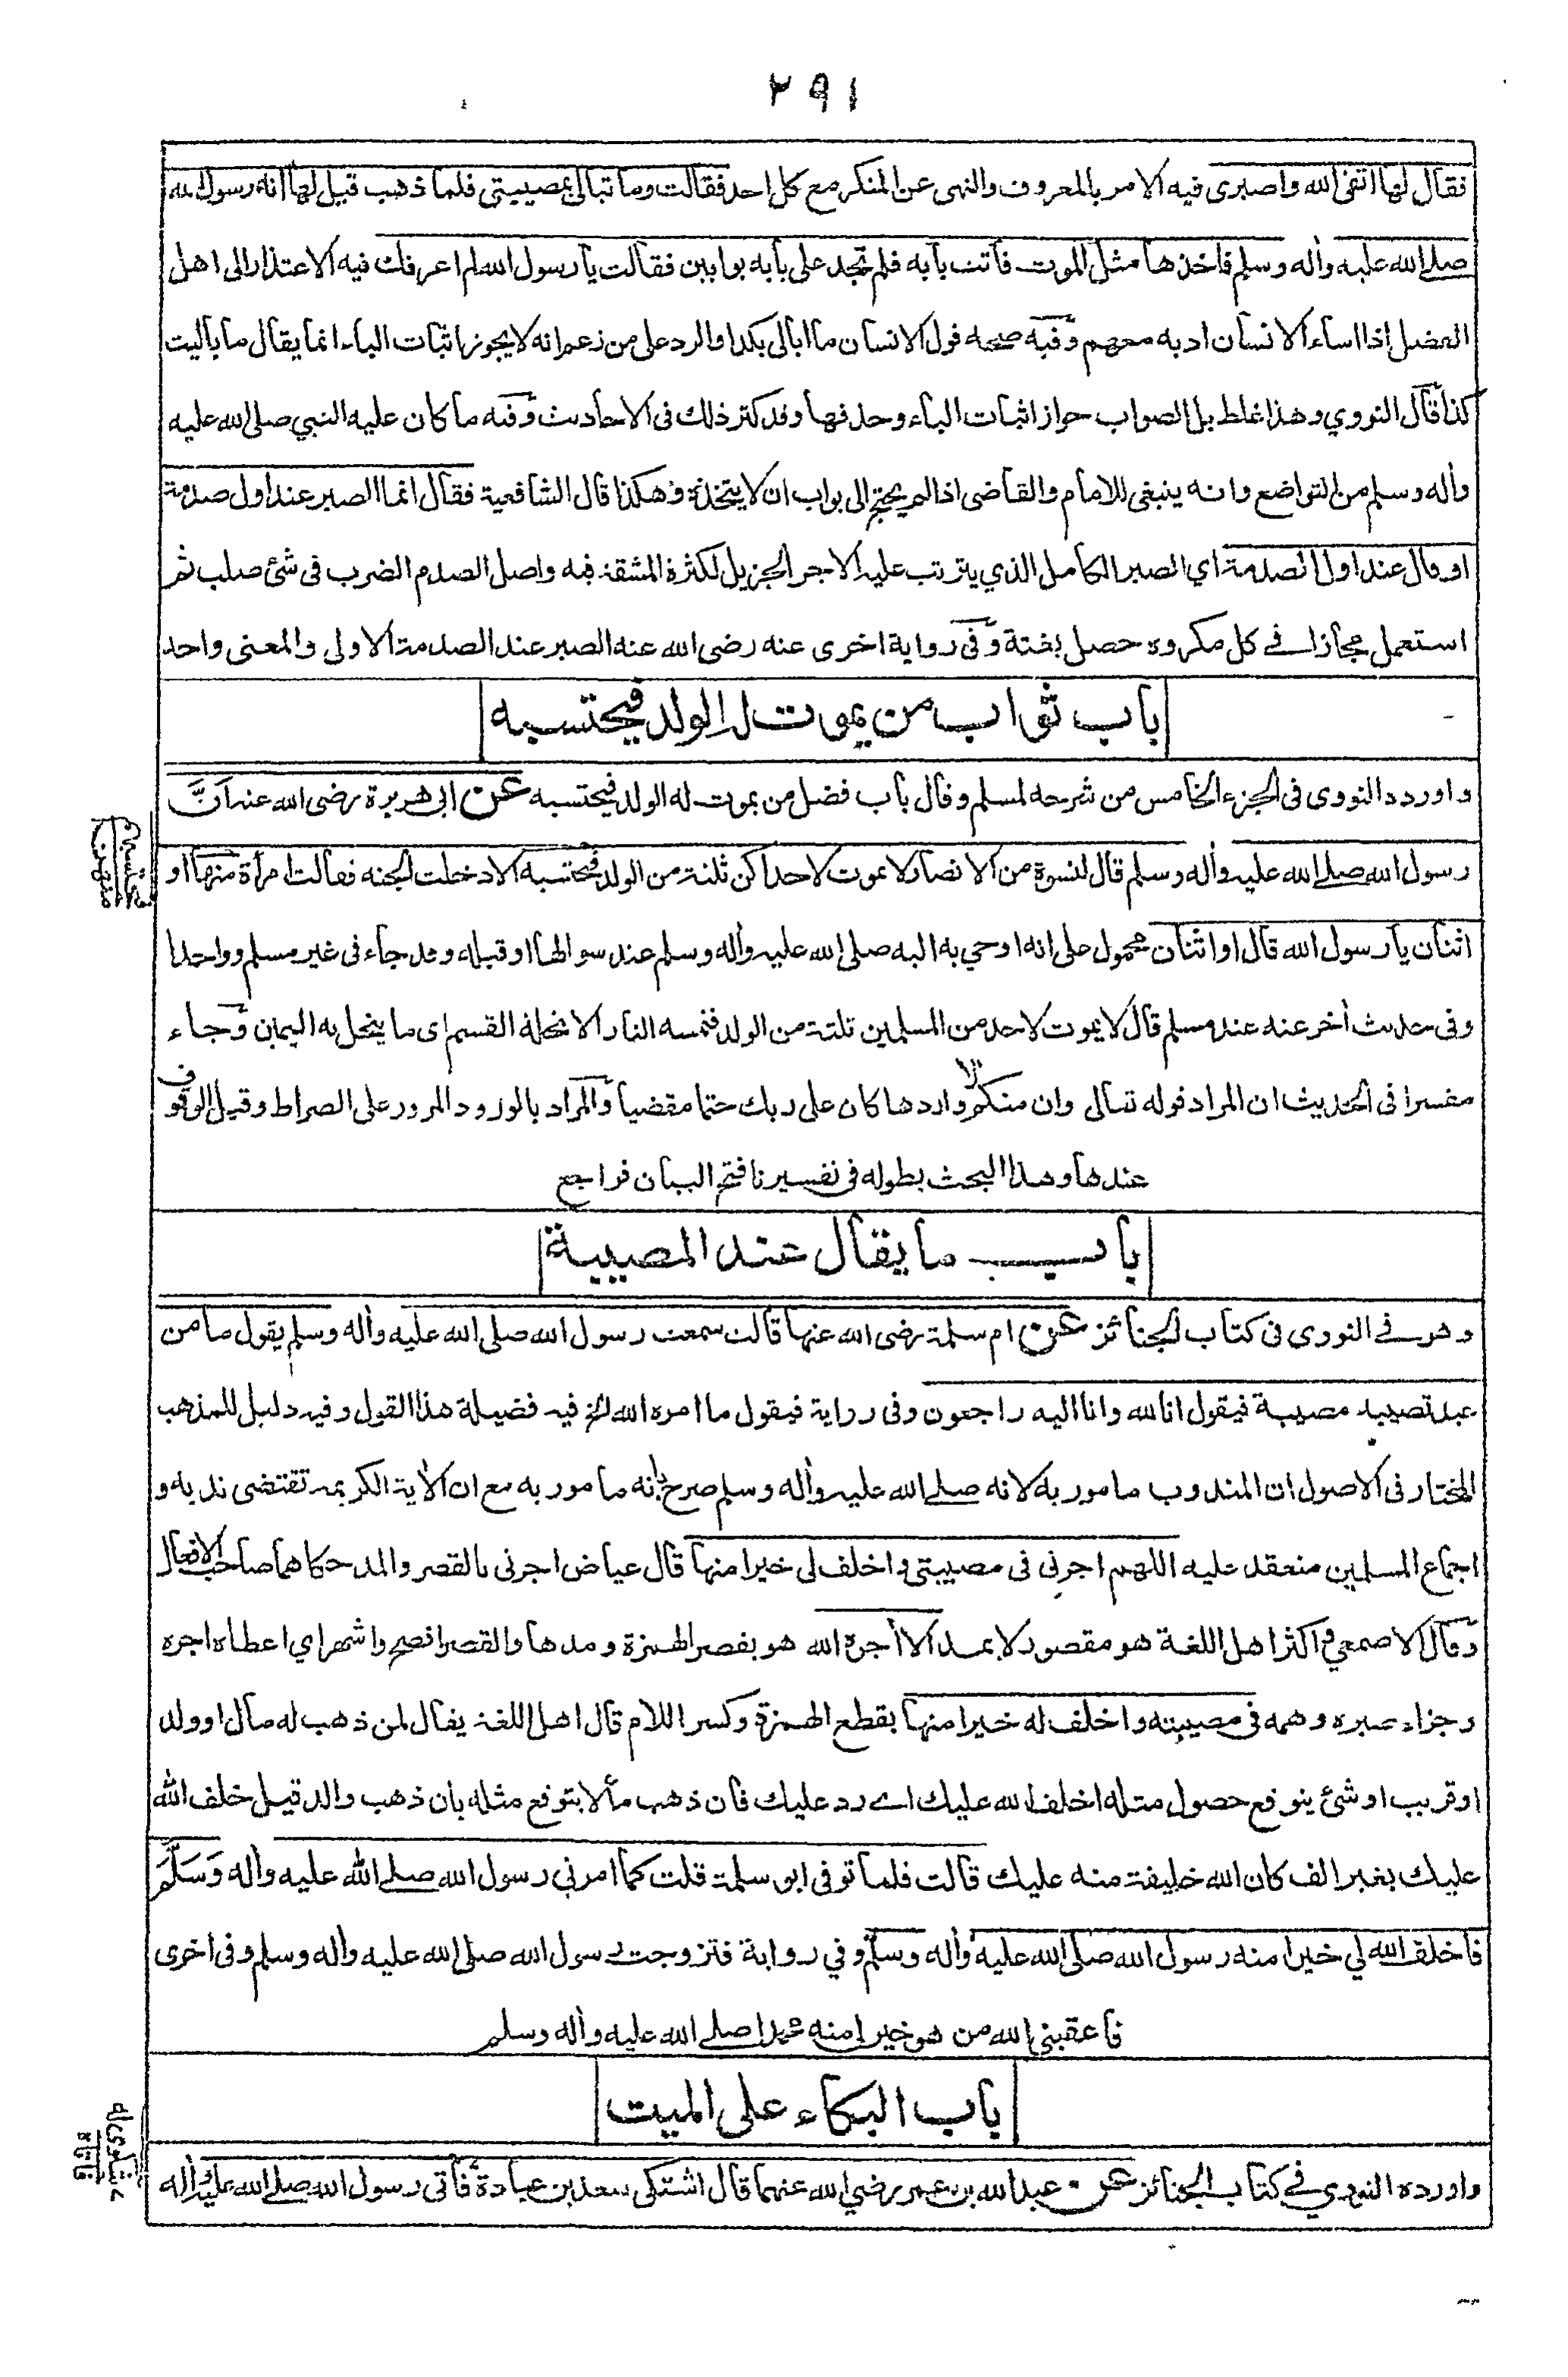 ٢٩١
فقال لها اتقى الله واصبرى فيه الامر بالمعروف والنهى عن المنكر مع كل احد فقالت وما تبالى بمصيبتى فلما ذهب قيل لها انه رسول الله
صلى الله عليه واله وسلم فاخذها مثل الموت فأتت بابه فلم تجد على بابه بوابين فقالت يا رسول الله لم اعرفك فيه الاعتذار الى اهل
الفضل اذا اساء الانسان ادبه معهم وفيه صحة قول الانسان ما ابالى بكذا والرد على من زعم انه لا يجوز اثبات الباء انما يقال ما باليت
كذا قال النووي وهذا غلط بل الصواب جواز اثبات الباء وحذفها وقد كثر ذلك فى الاحاديث وفيه ما كان عليه النبي صلى الله عليه
واله وسلم من التواضع وانه ينبغى للامام والقاضى اذا لم يحتج الى بواب ان لا يتخذه وهكذا قال الشافعية فقال انما الصبر عند اول صدمة
او قال عند اول الصدمة اي الصبر الكامل الذي يترتب عليه الاجر الجزيل لكثرة المشقة فيه واصل الصدم الضرب فى شئ صلب ثم
استعمل مجازا فى كل مكروه حصل بغتة وفى رواية اخرى عنه رضى الله عنه الصبر عند الصدمة الاولى والمعنى واحد
باب ثواب من يموت له الولد فيحتسبه
واورده النووى فى الجزء الخامس من شرحه لمسلم وقال باب فضل من يموت له الولد فيحتسبه عن ابى هريرة رضى الله عنه انَّ
رسول الله صلى الله عليه واله وسلم قال لنسوة من الانصار لا يموت لاحداكن ثلثة من الولد فتحتسبه الا دخلت الجنة فقالت امرأة منهن او
اثنان يا رسول الله قال او اثنان محمول على انه اوحي به اليه صلى الله عليه واله وسلم عند سوالها او قبله وقد جاء فى غير مسلم وواحدا
وفى حديث اخر عنه عند مسلم قال لا يموت لاحد من المسلمين ثلثة من الولد فتمسه النار الا تحلة القسم اى ما ينحل به اليمين وجاء
مفسرا فى الحديث ان المراد قوله تعالى وان منكم الا واردها كان على ربك حتما مقضيا والمراد بالورود المرور على الصراط وقيل الوقوف
عندها وهذا البحث بطوله فى تفسيرنا فتح البيان فراجع
باب ما يقال عند المصيبة
وهو فى النووى فى كتاب الجنائز عن ام سلمة رضى الله عنها قالت سمعت رسول الله صلى الله عليه واله وسلم يقول ما من
عبد تصيبه مصيبة فيقول انا لله وانا اليه راجعون وفى رواية فيقول ما امره الله الخ فيه فضيلة هذا القول وفيه دليل للمذهب
المختار فى الاصول ان المندوب مامور به لانه صلى الله عليه واله وسلم صرح بانه مامور به مع ان الاية الكريمة تقتضى ندبه و
اجماع المسلمين منعقد عليه اللهم اجرنى فى مصيبتى واخلف لى خيرا منها قال عياض اجرنى بالقصر والمد حكاهما صاحب الافعال
وقال الاصمعي واكثر اهل اللغة هو مقصور لا يمد الا أجره الله هو بقصر الهمزة ومدها والقصر افصح واشهر اي اعطاه اجره
وجزاء صبره وهمه فى مصيبته واخلف له خيرا منها بقطع الهمزة وكسر اللام قال اهل اللغة يقال لمن ذهب له مال او ولد
او قريب او شئ يتوقع حصول مثله اخلف الله عليك اى رد عليك فان ذهب ما لا يتوقع مثله بان ذهب والد قيل خلف الله
عليك بغير الف كان الله خليفة منه عليك قالت فلما توفى ابو سلمة قلت كما امرنى رسول الله صلى الله عليه واله وَسَلَّمَ
فاخلف الله لي خيرا منه رسول الله صلى الله عليه واله وسلم وفي رواية فتزوجت رسول الله صلى الله عليه واله وسلم وفى اخرى
فاعقبنى الله من هو خير منه محمدا صلى الله عليه واله وسلم
باب البكاء على الميت
واورده النووي فى كتاب الجنائز عن عبد الله بن عمر رضي الله عنهما قال اشتكى سعد بن عبادة فأتى رسول الله صلى الله عليه واله